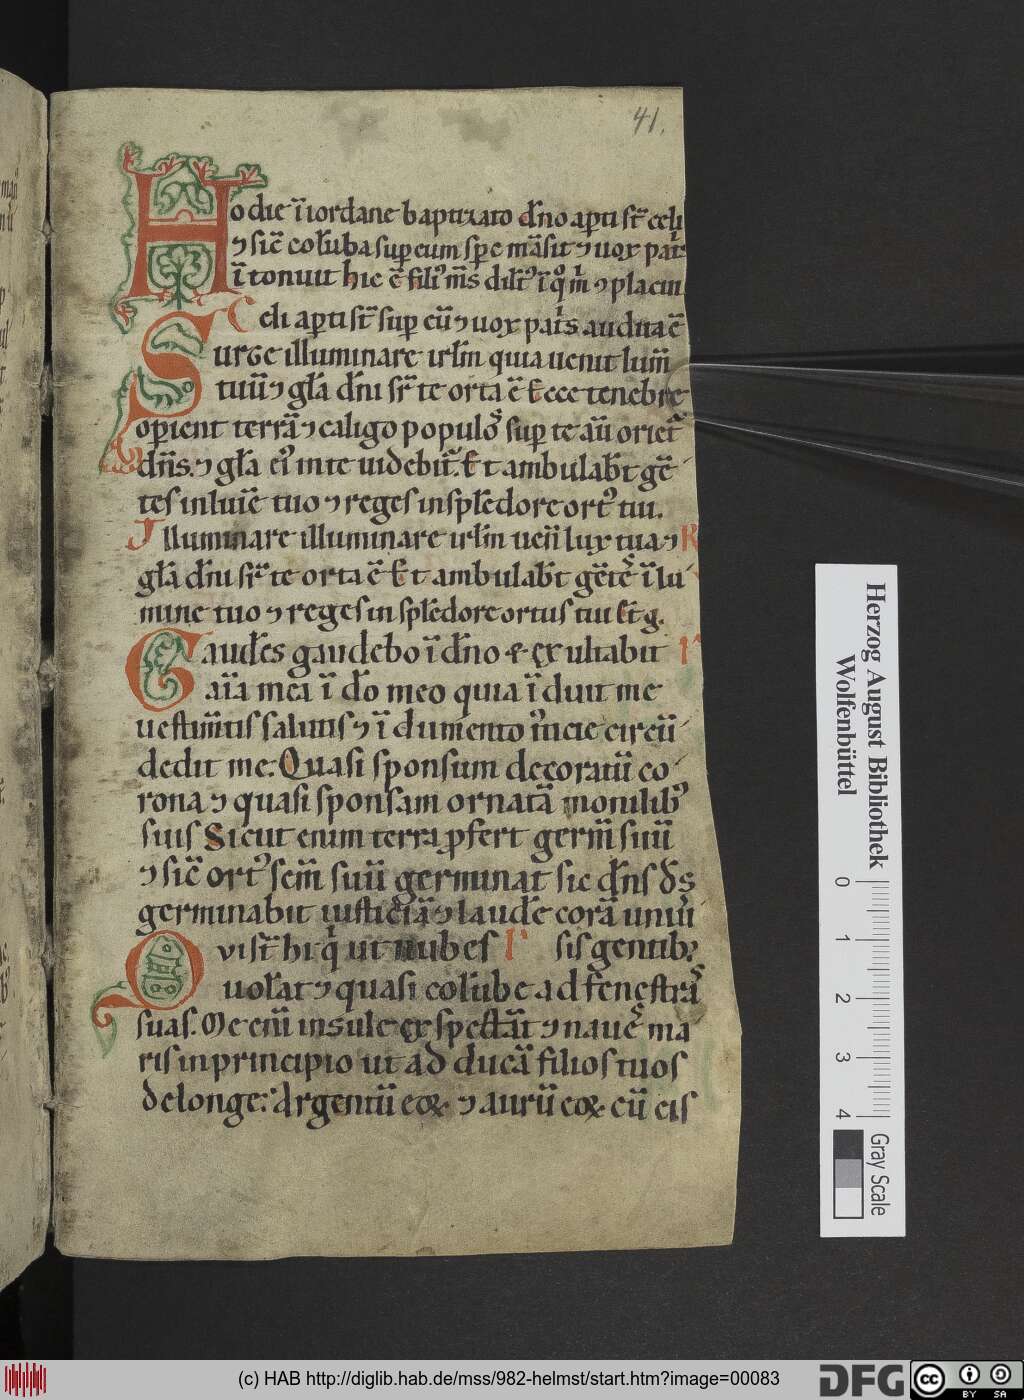 41.
Hodie ī iordane baptizato dño apti st̄ celi
⁊ sic̄ colūba sup eum spc māsit ⁊ uox patis
ītonuit hic ē filiꝰ m̄s dilc̄ꝰ ī qͦ m ⁊ placui
Celi apti st̄ sup eū ⁊ uox patis audita ē
Surge illuminare irłm quia uenit lum̄
tuū ⁊ gła dñi sr̄ te orta ē Ecce tenebre
operient terrā ⁊ caligo populoſ sup te aū oriet̄
dñs. ⁊ gła eiꝰ in te uidebit̄. Et ambulabt gē
tes in luīe tuo ⁊ reges in splēdore ortꝰ tui.
Illuminare illuminare irłm ueñ lux tua ⁊ R
gła dñi sr̄ te orta ē Et ambulabt gētes ī lu
mine tuo ⁊ reges in splēdore ortus tui Et g.
Gaudēs gaudebo ī dño & exultabit
aīa mea ī do meo quia īduit me
uestim̄tis salutis ⁊ īdumento iusticie circū
dedit me. Quasi sponsum decoratū co
rona ⁊ quasi sponsam ornatā monilibꝰ
suis Sicut enim terra pfert germ̄ suū
⁊ sic̄ ortꝰ sem̄ suū germinat sic dñs ds
germinabit iusticiā ⁊ laudē corā uniu
Qui st̄ hi q̄ ut nubes sis gentibꝫ
uolāt ⁊ quasi colūbe ad fenestras
suas. Me eni insule expectāt ⁊ naues ma
ris in principio ut adducā filios tuos
de longe. Argentū eoꝝ ⁊ aurū eoꝝ cū eis
Herzog August Bibliothek
Wolfenbüttel
0 1 2 3 4
Gray Scale
(c) HAB http://diglib.hab.de/mss/982-helmst/start.htm?image=00083
DFG
cc BY SA